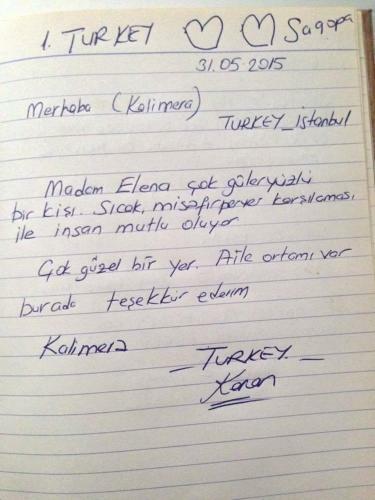 1. TURKEY Sagopa
31.05.2015
Merhaba (Kalimera)
TURKEY_istanbul
Madam Elena çok güleryüzlü
bir kişi. Sıcak, misafirperver karşılaması
ile insan mutlu oluyor
Çok güzel bir yer. Aile ortamı var
burada teşekkür ederim
Kalimera
_ TURKEY _
Kenan